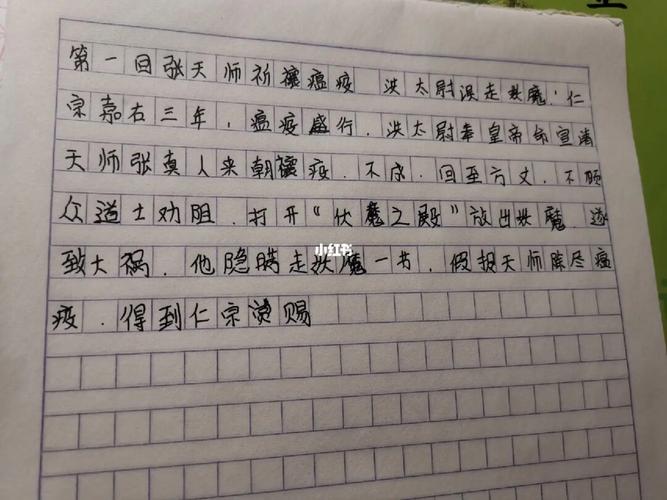 第一回张天师祈禳瘟疫 洪太尉误走妖魔:仁
宗嘉右三年,瘟疫盛行.洪太尉奉皇帝命宣请
天师张真人来朝禳疫.不成.回至方丈.不顾
众道士劝阻.打开“伏魔之殿”放出妖魔.遂
致大祸.他隐瞒走妖魔一节.假报天师除尽瘟
疫.得到仁宗赏赐
小红书